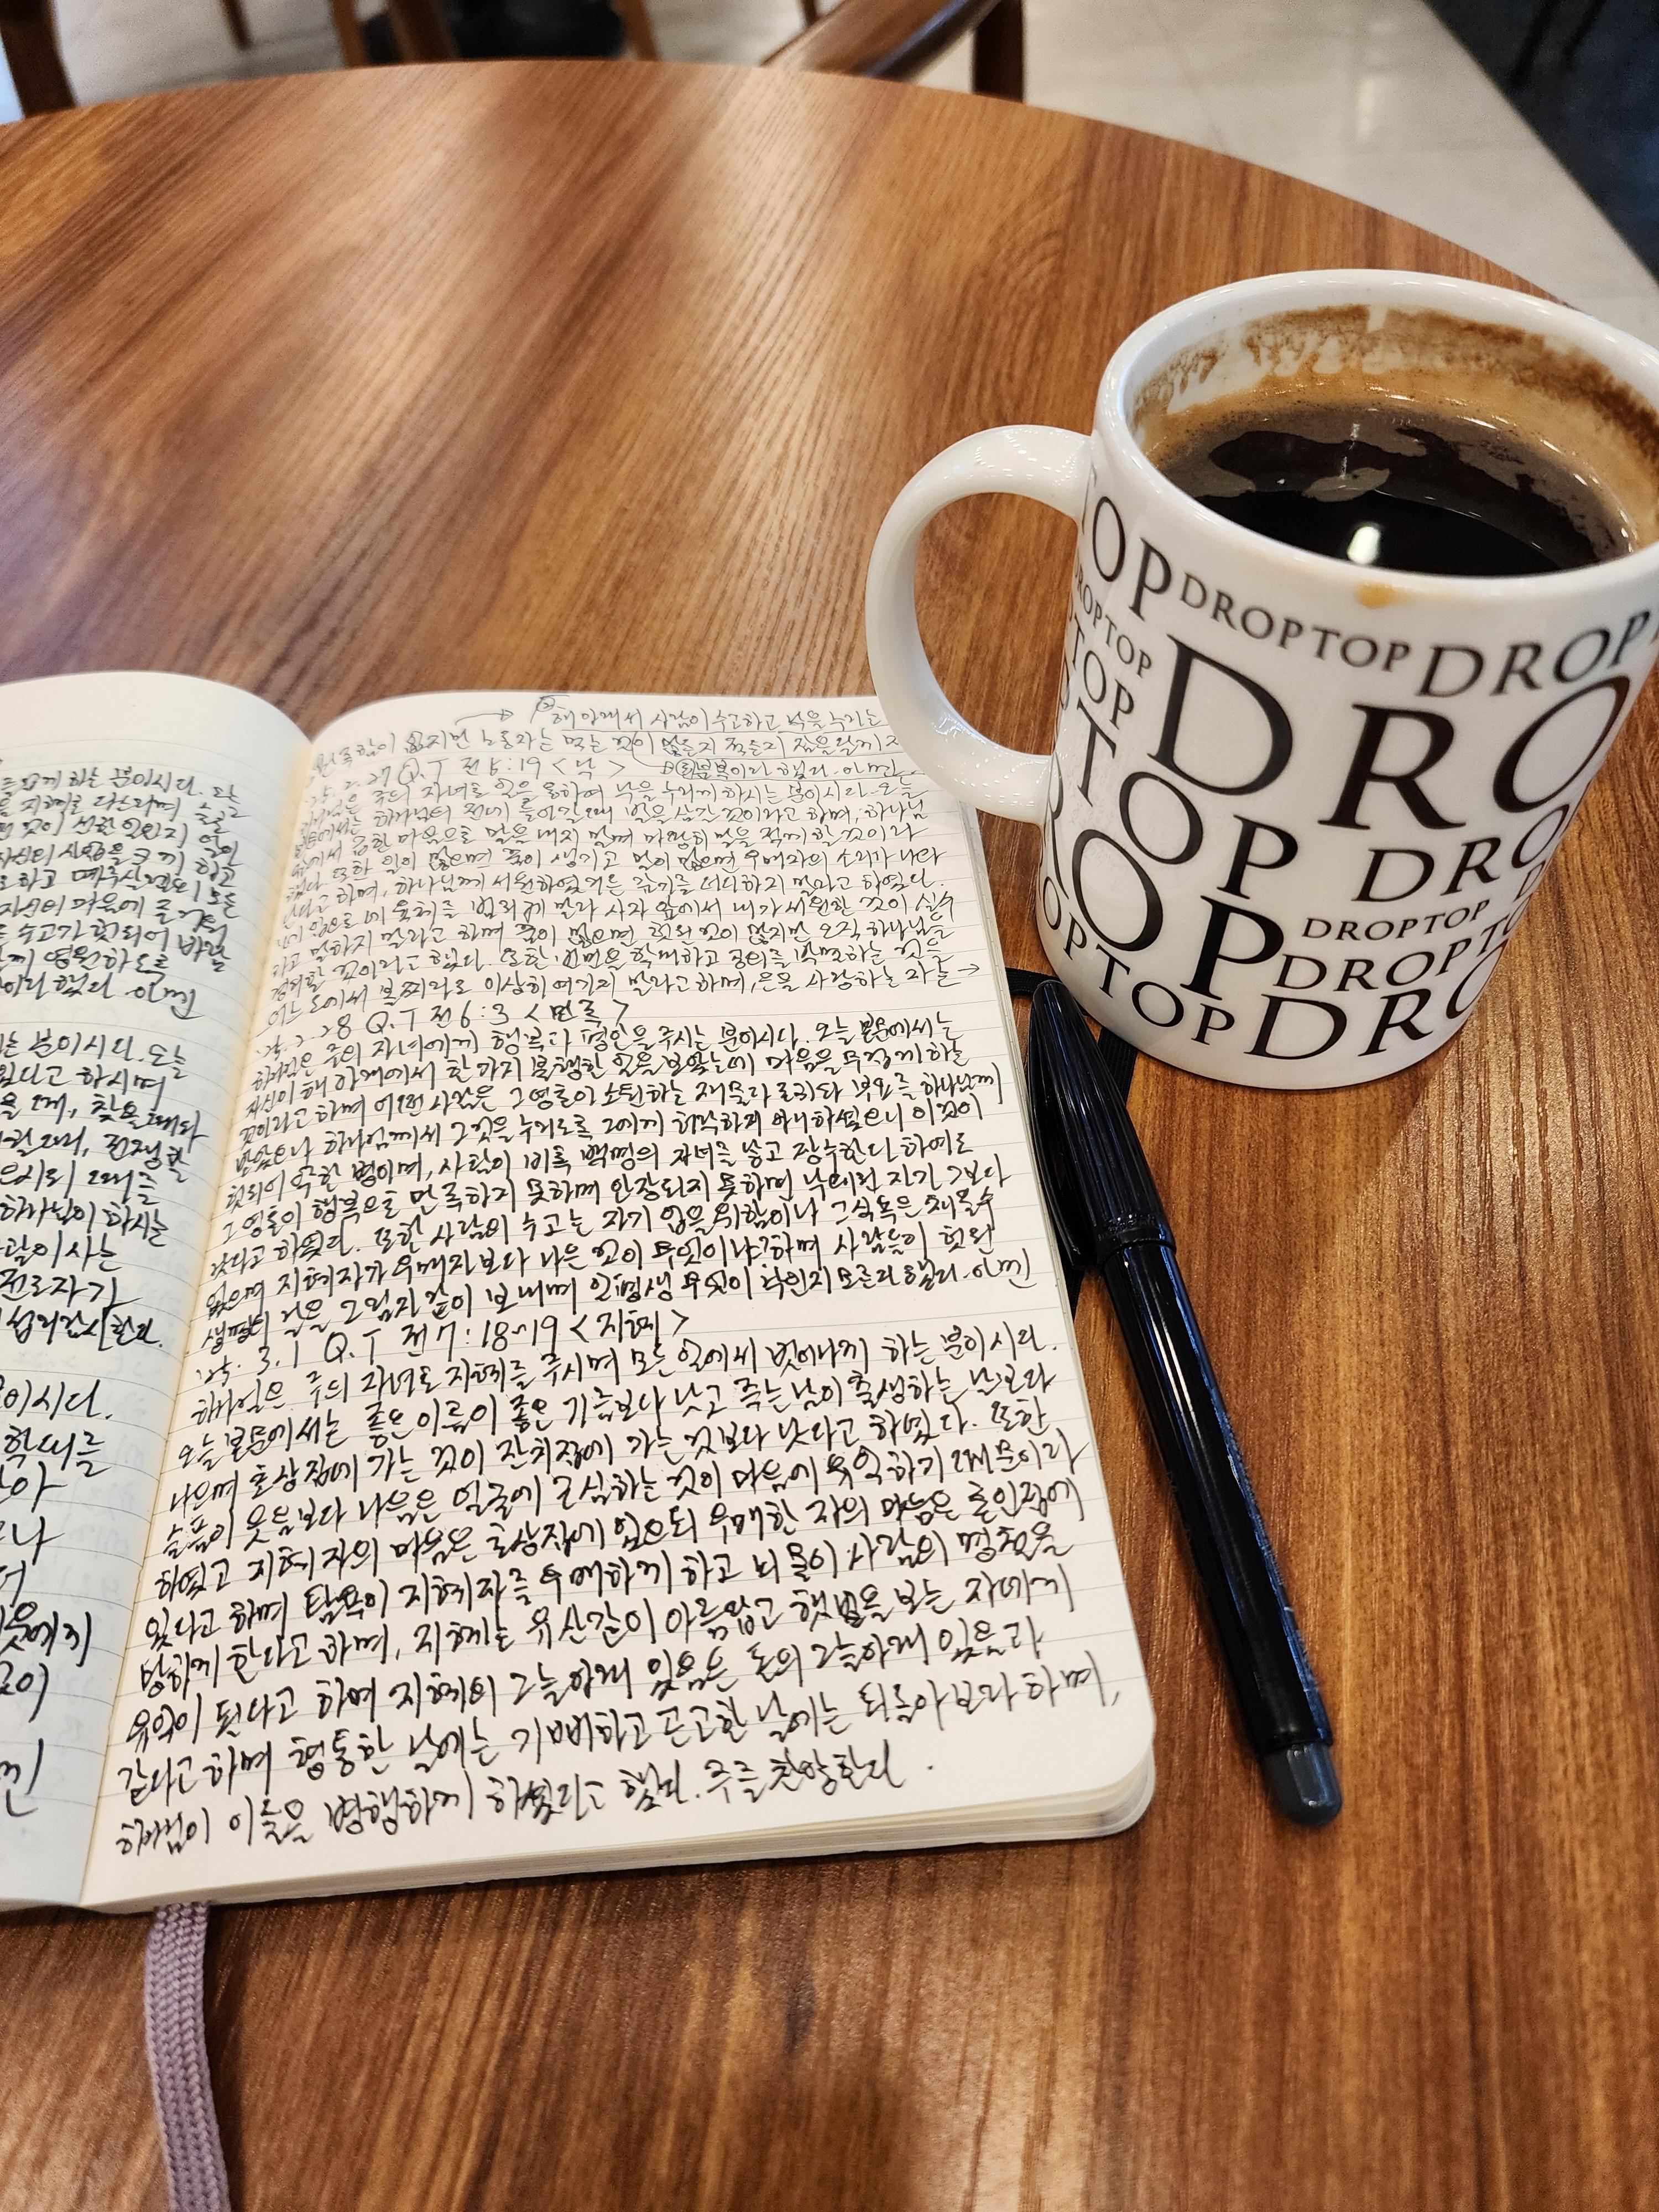 를 함께 하는 분이시다. 오늘
을 지혜로 다스리며
자신의 마음에
수고가 헛되어 바람
영원하도록
이라 했다. 아멘
는 분이시다. 오늘
있다고 하시며
을 때, 찾을 때와
때, 전쟁할
때를
하나님이 하시는
사는
분이시다.
해 아래에서 사람이 수고하고 낙을 누리는
없지면 노동자는 먹는 것이 많든지 적든지 잠을
2.27 Q.T 전5:19 <낙>
복이라 했다. 아멘
주의 자녀로 있은 통하여 낙을 누리게 하시는 분이시다. 오늘
본문에서는 하나님의 전에 들어갈 때에 발을 삼갈 것이라고 하며, 하나님
앞에서 급한 마음으로 말을 내지 말며 마땅히 말을 적게 할 것이라
했다. 또한 일이 많으면 꿈이 생기고 말이 많으면 우매자의 소리가 나타
난다고 하며, 하나님께 서원하였거든 갚기를 더디하지 말라고 하였다.
네 입으로 네 육체를 범죄케 말라 사자 앞에서 내가 서원한 것이 실수
라고 말하지 말라고 하며 꿈이 많으면 헛된 것이 많지만 오직 하나님을
경외할 것이라고 했다. 또한 빈민을 학대하고 정의를 박멸하는 것을
어느 도에서 보거라도 이상히 여기지 말라고 하며, 은을 사랑하는 자는 →
'25.2.28 Q.T 전6:3 <만족>
하나님은 주의 자녀에게 행복과 평안을 주시는 분이시다. 오늘 본문에서는
자신이 해 아래에서 한 가지 불행한 일을 보았는데 마음을 무겁게 하는
것이라고 하며 어떤 사람은 그 영혼이 소원하는 재물과 부요를 하나님께
받았으나 하나님께서 그것을 누리도록 그에게 허락하지 아니하셨으니 이것이
헛되어 악한 병이며, 사람이 비록 백명의 자녀를 낳고 장수한다 하여도
그 영혼이 행복으로 만족하지 못하며 안장되지 못하면 낙태된 자가 그보다
낫다고 하였다. 또한 사람의 수고는 자기 입을 위함이나 그 식욕은 채울수
없으며 지혜자가 우매자보다 나은 것이 무엇이냐? 하며 사람들이 헛된
생명의 날을 그림자 같이 보내며 일평생 무엇이 낙인지 모른다 했다. 아멘
'25.3.1 Q.T 전7:18~19 <지혜>
하나님은 주의 자녀로 지혜를 주시며 모든 일에서 벗어나게 하는 분이시다.
오늘 본문에서는 좋은 이름이 좋은 기름보다 낫고 죽는 날이 출생하는 날보다
나으며 초상집에 가는 것이 잔치집에 가는 것보다 낫다고 하였다. 또한
슬픔이 웃음보다 나음은 얼굴에 근심하는 것이 마음에 유익하기 때문이라
하였고 지혜자의 마음은 초상집에 있으되 우매한 자의 마음은 혼인집에
있다고 하며 탐욕이 지혜자를 우매하게 하고 뇌물이 사람의 명철을
망하게 한다고 하며, 지혜는 유산같이 아름답고 햇빛을 보는 자에게
유익이 된다고 하며 지혜의 그늘아래 있음은 돈의 그늘아래 있음과
같다고 하며 형통한 날에는 기뻐하고 곤고한 날에는 되돌아보라 하며,
하나님이 이들을 병행하게 하였다고 했다. 주를 찬양한다.
TOP DROPTOP DROP
DROPTOP DRO
TOP
TOP DRO
DROPTOP
ROP DROPTO
OPTOP DRO